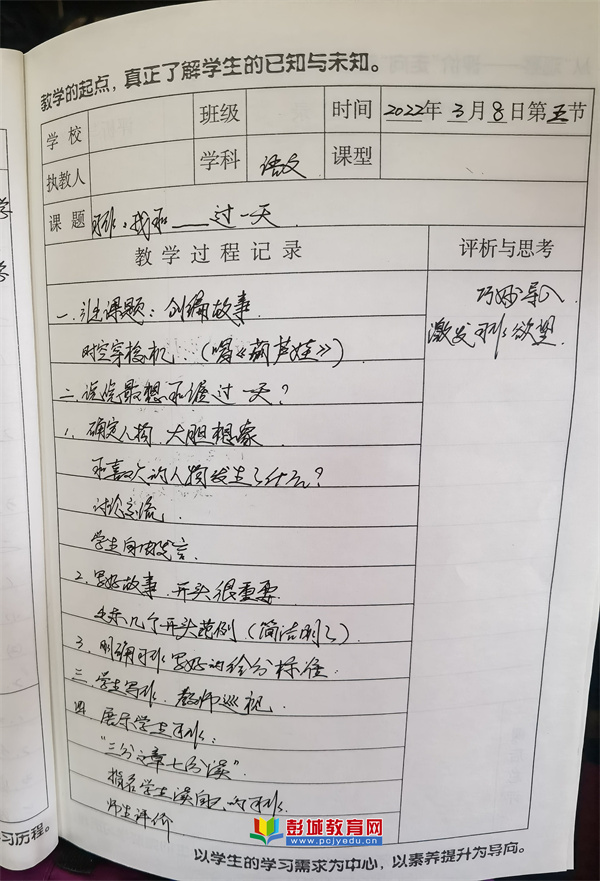 教学的起点，真正了解学生的已知与未知。
学校 班级 时间 2022年 3月 8日第五节
执教人 学科 语文 课型
课题 习作：我和____过一天
教学过程记录 评析与思考
一.引出课题：创编故事
巧妙导入
时空穿梭机.（唱《葫芦娃》）
激发习作欲望
二.说说最想和谁过一天？
1.确定人物.大胆想象
和喜欢的人物发生了什么？
讨论交流.
学生自由发言.
2.写好故事.开头很重要
出示几个开头范例（简洁明了）
3.明确习作写好的给分标准.
三.学生写作.教师巡视.
四.展示学生习作：
“三分文章七分读”.
指名学生读自己的习作.
师生评价
习历程。
彭城教育网
www.pcjyedu.cn
以学生的学习需求为中心，以素养提升为导向。